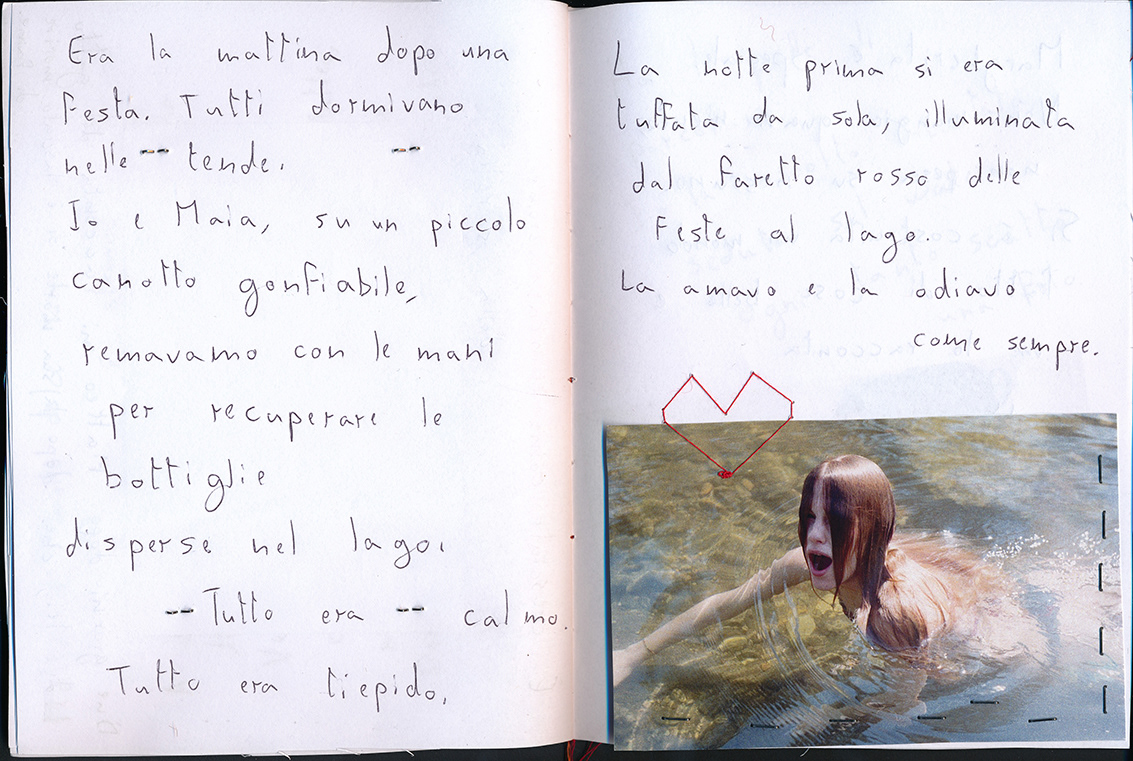 Era la mattina dopo una
festa. Tutti dormivano
nelle tende.
Io e Maia, su un piccolo
canotto gonfiabile,
remavamo con le mani
per recuperare le
bottiglie
disperse nel lago.
Tutto era calmo.
Tutto era tiepido.
La notte prima si era
tuffata da sola, illuminata
dal faretto rosso delle
feste al lago.
La amavo e la odiavo
come sempre.